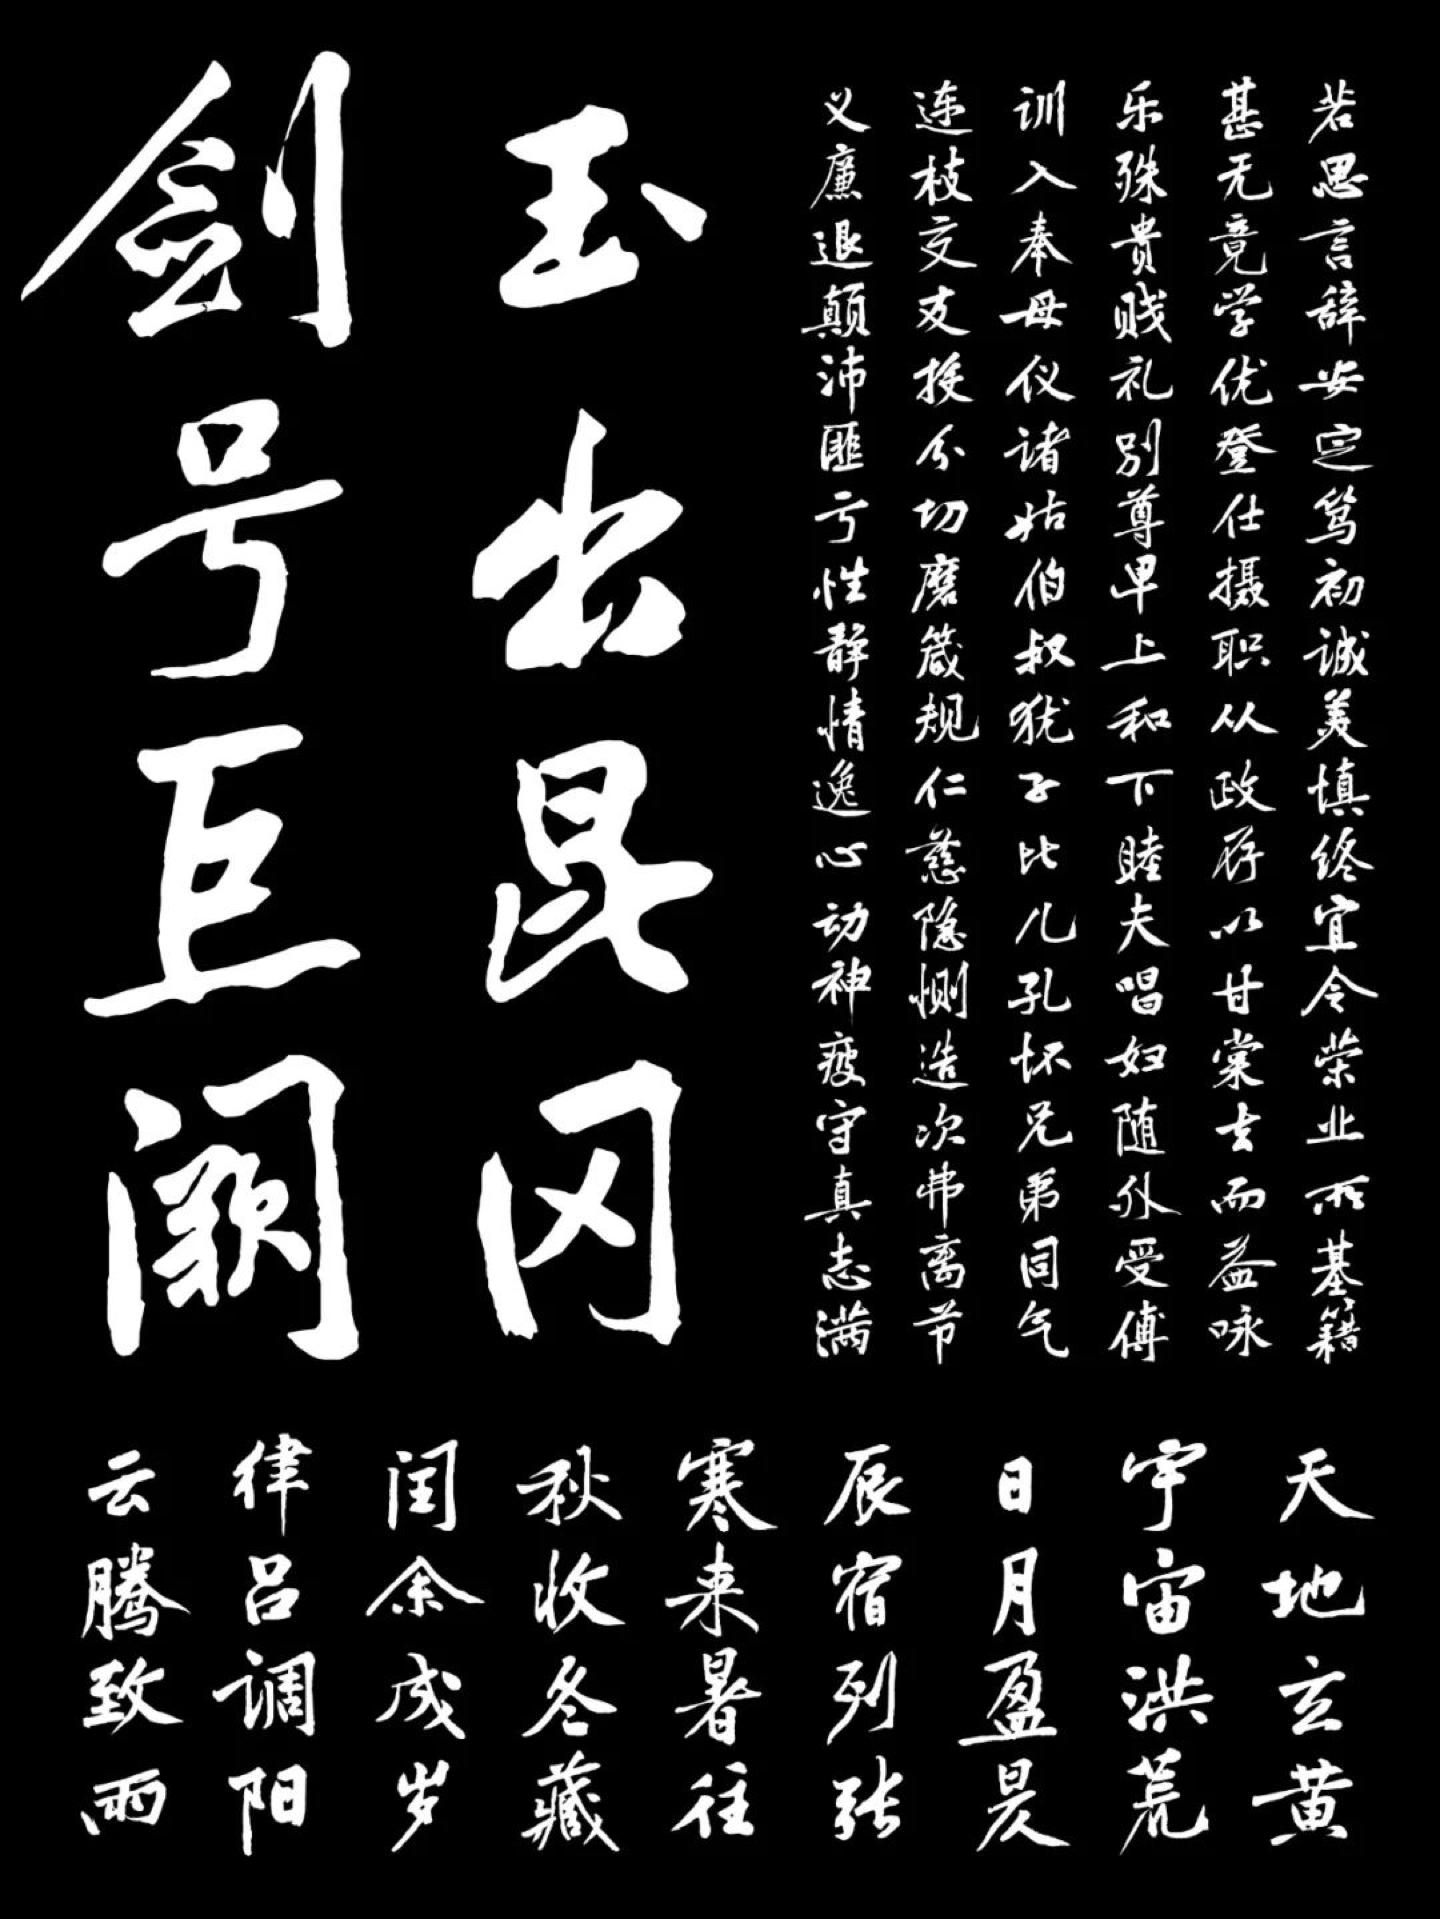 若思言辞安定笃初诚美慎终宜令荣业所基籍
甚无竟学优登仕摄职从政存以甘棠去而益咏
乐殊贵贱礼别尊卑上和下睦夫唱妇随外受傅
训入奉母仪诸姑伯叔犹子比儿孔怀兄弟同气
连枝交友投分切磨箴规仁慈隐恻造次弗离节
义廉退颠沛匪亏性静情逸心动神疲守真志满
玉出昆冈
剑号巨阙
天地玄黄
宇宙洪荒
日月盈昃
辰宿列张
寒来暑往
秋收冬藏
闰余成岁
律吕调阳
云腾致雨